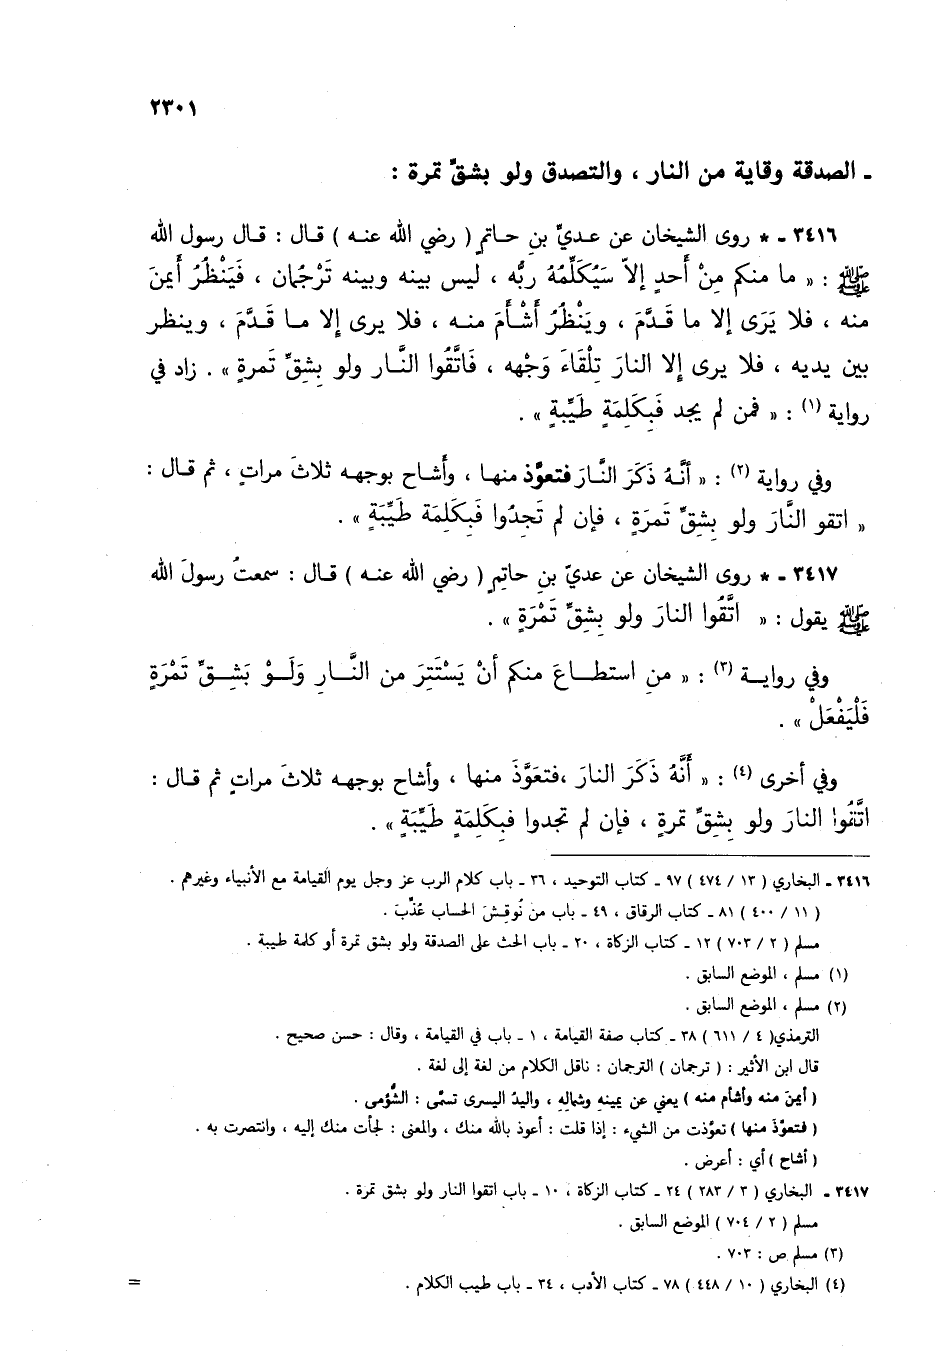 ٢٣٠١
ـ الصدقة وقاية من النار ، والتصدق ولو بشقِّ تمرة :
٣٤١٦ ـ * روى الشيخان عن عـديِّ بنِ حـاتمٍ ( رضي الله عنـه ) قـال : قـال رسول الله
ﷺ : « ما منكم مِنْ أَحدٍ إلاّ سَيُكَلِّمُهُ ربُّه ، ليس بينه وبينه تَرْجُمَان ، فَيَنْظُرُ أيمنَ
منه ، فلا يَرَى إلا ما قَدَّمَ ، ويَنْظُرُ أَشْـأَمَ منـه ، فلا يرى إلا مـا قَـدَّمَ ، وينظر
بين يديه ، فلا يرى إلا النارَ تِلْقَاءَ وَجْهه ، فَاتَّقُوا النَّـار ولو بِشقِّ تَمرةٍ » . زاد في
رواية (١) : « فمن لم يجد فَبِكَلِمَةٍ طَيِّبةٍ » .
وفي رواية (٢) : « أنَّـهُ ذَكَرَ النَّـارَ فتعوَّذ منهـا ، وأَشـاح بوجهـه ثلاثَ مراتٍ ، ثم قـال :
« اتقو النَّارَ ولو بِشقِّ تَمرَةٍ ، فإن لم تَجِدُوا فَبِكَلِمَة طَيِّبَةٍ » .
٣٤١٧ ـ * روى الشيخان عن عديّ بنِ حاتِمٍ ( رضي الله عنـه ) قـال : سمعتُ رسولَ الله
ﷺ يقول : « اتَّقُوا النارَ ولو بِشقِّ تَمْرَةٍ » .
وفي روايـة (٣) : « منِ استطـاعَ منكم أنْ يَسْتَتِرَ من النَّـارِ وَلَـوْ بَشِـقِّ تَمْرَةٍ
فَلْيَفْعَلْ » .
وفي أخرى (٤) : « أَنَّهُ ذَكَرَ النارَ ،فتعَوَّذَ منها ، وأشاح بوجهـه ثلاثَ مراتٍ ثم قـال :
اتَّقُوا النارَ ولو بِشقِّ تمرةٍ ، فإن لم تجدوا فبِكَلِمَةٍ طَيِّبَةٍ » .
٣٤١٦ ـ البخاري ( ١٣ / ٤٧٤ ) ٩٧ ـ كتاب التوحيد ، ٣٦ ـ باب كلام الرب عز وجل يوم القيامة مع الأنبياء وغيرهم .
( ١١ / ٤٠٠ ) ٨١ ـ كتاب الرقاق ، ٤٩ ـ باب من نُوقِشَ الحساب عُذِّبَ .
مسلم ( ٢ / ٧٠٣ ) ١٢ ـ كتاب الزكاة ، ٢٠ ـ باب الحث على الصدقة ولو بشق تمرة أو كلمة طيبة .
(١) مسلم ، الموضع السابق .
(٢) مسلم ، الموضع السابق .
الترمذي( ٤ / ٦١١ ) ٣٨ ـ كتاب صفة القيامة ، ١ ـ باب في القيامة ، وقال : حسن صحيح .
قال ابن الأثير : ( ترجمان ) الترجمان : ناقل الكلام من لغة إلى لغة .
( أيمن منه وأشأم منه ) يعني عن يمينه وشماله ، واليدُ اليسرى تسمّى : الشُّؤمى .
( فتعوّذ منها ) تعوّذت من الشيء : إذا قلت : أعوذ بالله منك ، والمعنى : لجأت منك إليه ، وانتصرت به .
( أشاح ) أي : أعرض .
٣٤١٧ ـ البخاري ( ٣ / ٢٨٣ ) ٢٤ ـ كتاب الزكاة ، ١٠ ـ باب اتقوا النار ولو بشق تمرة .
مسلم ( ٢ / ٧٠٤ ) الموضع السابق .
(٣) مسلم ص : ٧٠٣ .
(٤) البخاري ( ١٠ / ٤٤٨ ) ٧٨ ـ كتاب الأدب ، ٣٤ ـ باب طيب الكلام . =